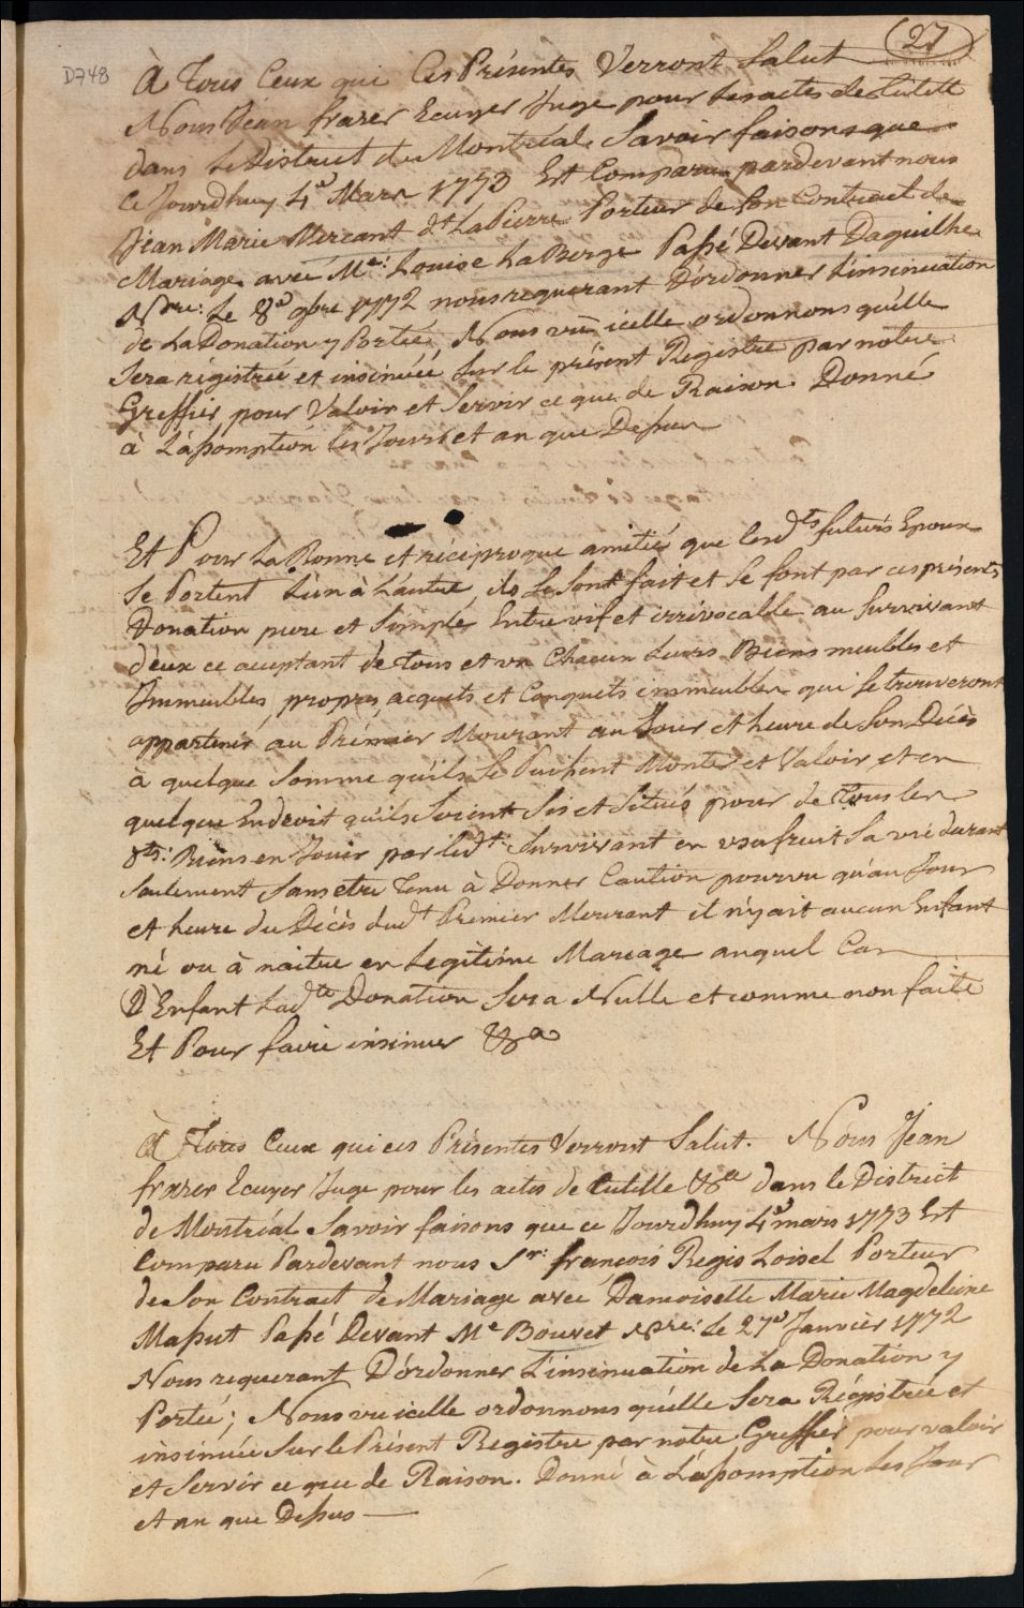 (27)
D748
À Tous Ceux qui Ces Présentes Verront Salut
Nous Jean frazer Ecuyer Juge pour Les actes de Tutelle
dans Le District de Montréal Savoir faisons que
Ce Jourdhuy 4e Mars 1773 Est Comparu pardevant nous
Jean Marie Mercant dt LaPierre Porteur de Son Contract de
Mariage avec Me: Louise LaBerge Passé Devant Daguilhe
Nre: Le 8e 9bre 1772 nous requerant D'ordonner L'insinuation
de La Donation y Portée, Nous vû icelle ordonnons qu'elle
Sera régistrée et insinuéé Sur le présent Registre par notre
Greffier pour Valoir et Servir ce que de Raison. Donné
à L'assomption Les Jour et an que Dessus
Et Pour La Bonne et réciproque amitié que lesdts futurs Epoux
Se Portent L'un à L'autre, ils Se Sont fait et Se font par ces présentes
Donation pure et Simple Entre vif et irrévocable au Survivant
d'eux ce acceptant de tous et un Chacun Leurs Biens meubles et
Immeubles, propres, acquets et Conquets immeubles qui Se trouveront
appartenir au Premier Mourant au Jour et heure de Son Décès
à quelque Somme qu'ils Se Puissent Monter et Valoir et en
quelque Endroit qu'ils Soient Sis et Situés pour de Tous les
dts: Biens en Jouir par ledt Survivant en usufruit Sa vie durant
Seulement Sans etre Tenu à Donner Caution pourvu qu'au Jour
et heure du Décès dudt Premier Mourant il n'y ait aucun Enfant
né ou à naitre en Legitime Mareage auquel Cas
D'Enfant Ladte Donation Sera Nulle et comme non faite
Et Pour faire insinuer &a
À Tous Ceux qui ces Présentes Verront Salut. Nous Jean
frazer Ecuyer Juge pour les actes de Tutelle &a dans le District
de Montréal Savoir faisons que ce Jourdhuy 4e mars 1773 Est
Comparu Pardevant nous Sr: françois Regis Loisel Porteur
de Son Contract de Mariage avec Damoiselle Marie Magdeleine
Massut Passé Devant Me Bouvet Nre: Le 27e Janvier 1772
Nous requerant D'ordonner L'insinuation de La Donation y
Portée; Nous vu icelle ordonnons qu'elle Sera Régistrée et
insinuée Sur le Présent Registre par notre Greffier pour valoir
et Servir ce que de Raison. Donné à L'assomption Les Jour
et an que Dessus